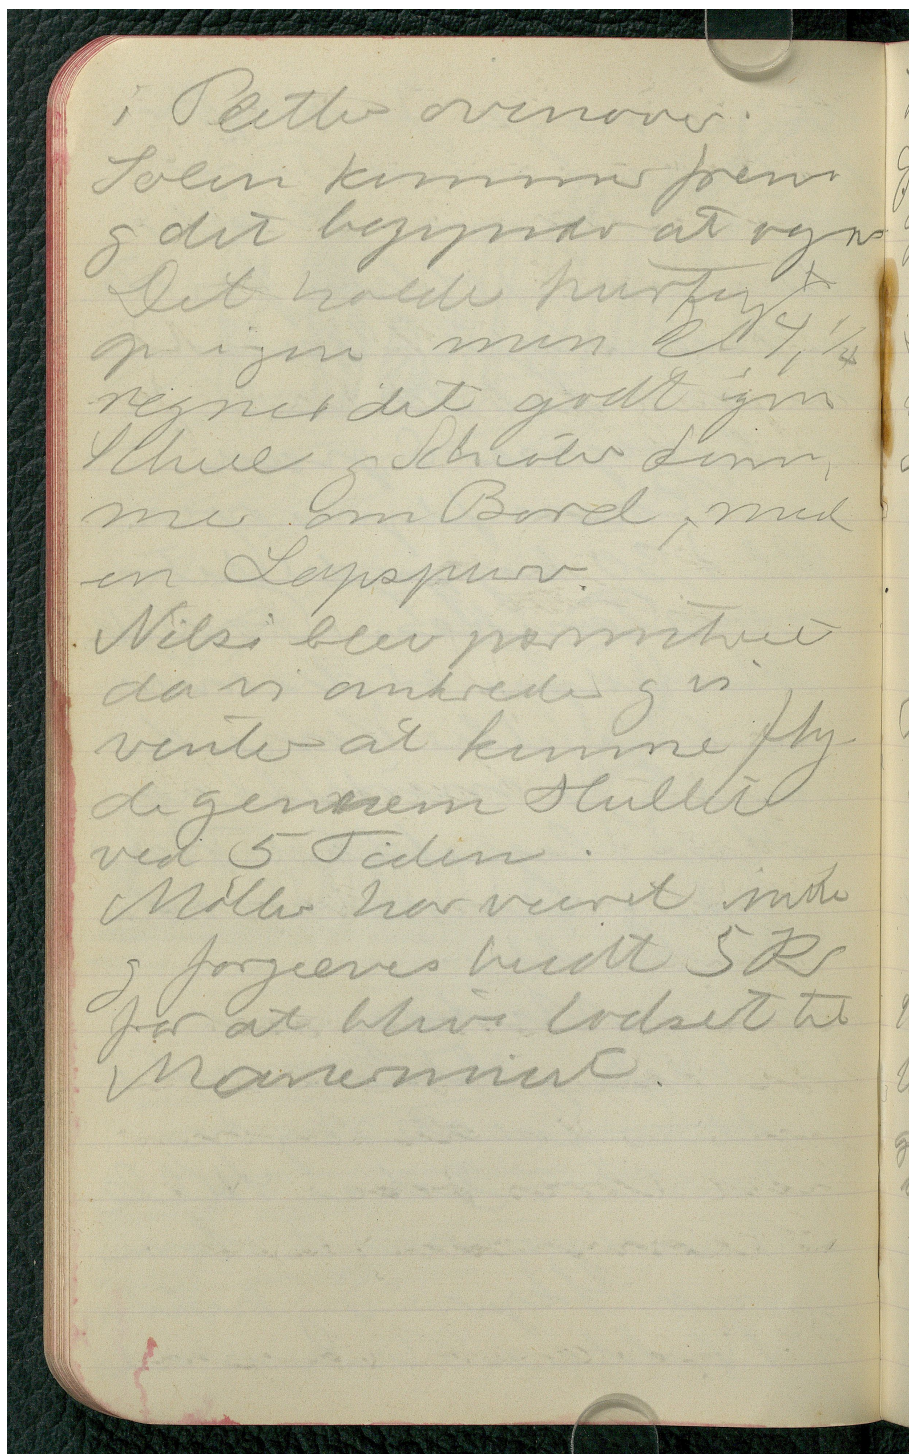 i Pletter ovenover.
Solen kommer frem
og det begynder at regne
Det holder hurtigt
op igen men Kl 4, 1/4
regner det godt igen
Scheel og Schiøler kom,
mer om Bord, med
en Lapspurv.
Niels blev
da vi ankrede og vi
venter at kunne fly-
de gennem Hullet
ved 5 Tiden.
Møller har været inde
og forgæves budt 5 Kr
for at blive lodset til